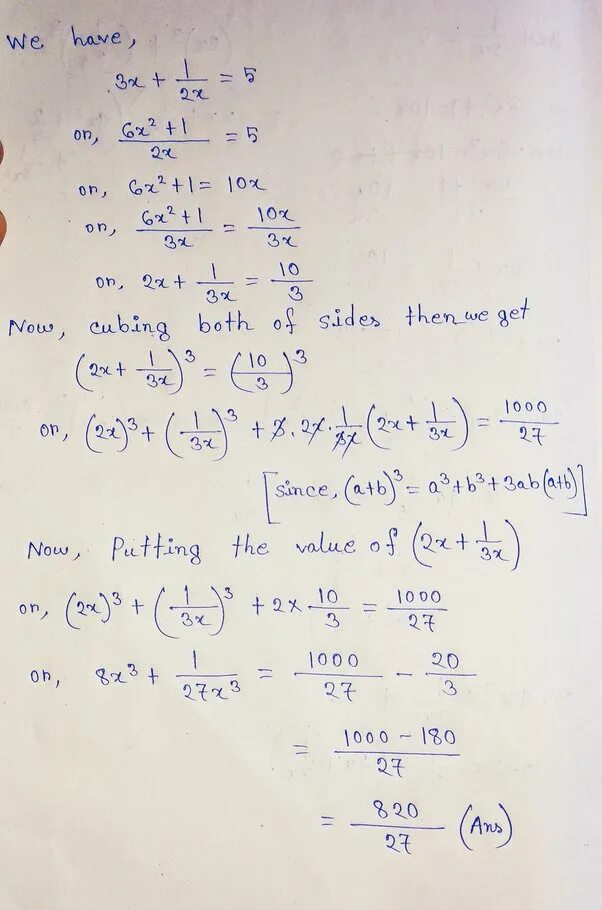 We have,
3x + 1/2x = 5
or, 6x² + 1/2x = 5
or, 6x² + 1 = 10x
or, 6x² + 1/3x = 10x/3x
or, 2x + 1/3x = 10/3
Now, cubing both of sides then we get
(2x + 1/3x)³ = (10/3)³
or, (2x)³ + (1/3x)³ + 3. 2x. 1/3x (2x + 1/3x) = 1000/27
[since, (a+b)³ = a³+b³+3ab(a+b)]
Now, Putting the value of (2x + 1/3x)
or, (2x)³ + (1/3x)³ + 2 × 10/3 = 1000/27
or, 8x³ + 1/27x³ = 1000/27 - 20/3
= 1000 - 180/27
= 820/27 (Ans)